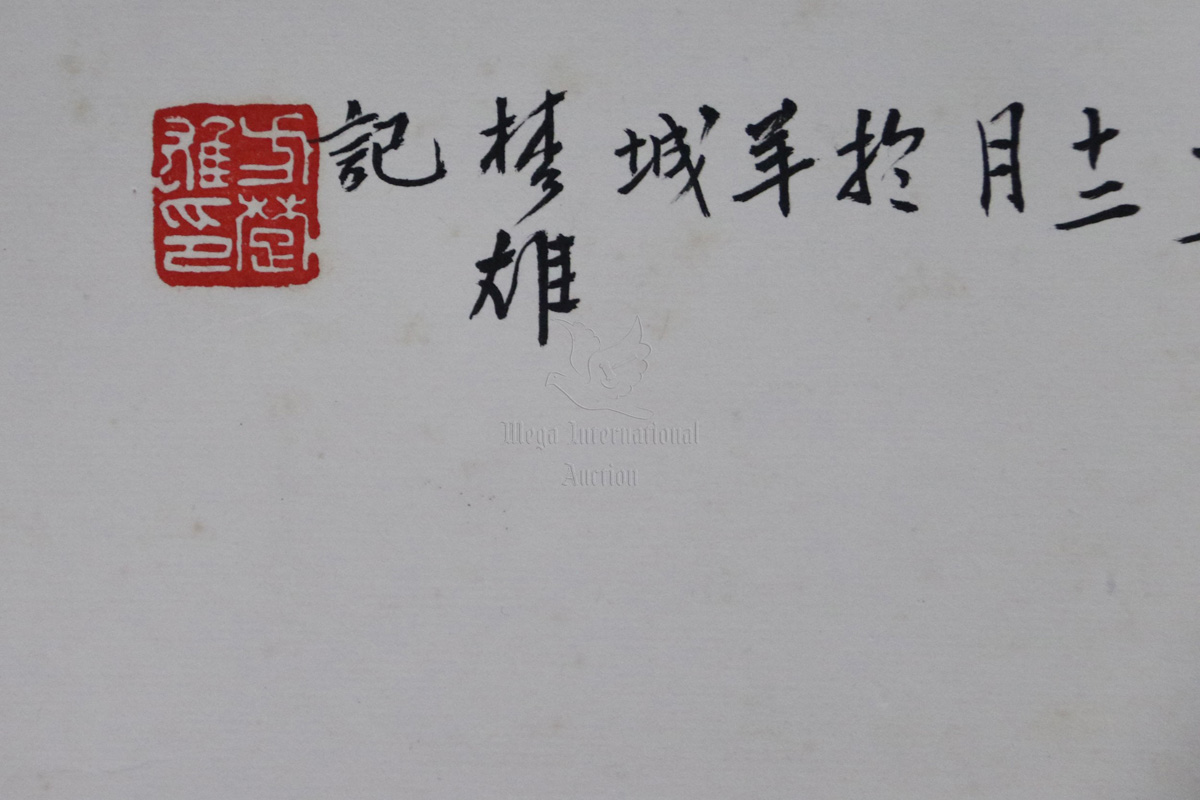 十二
月
於
羊
城
楚雄
記
方楚
雄印
Mega International
Auction